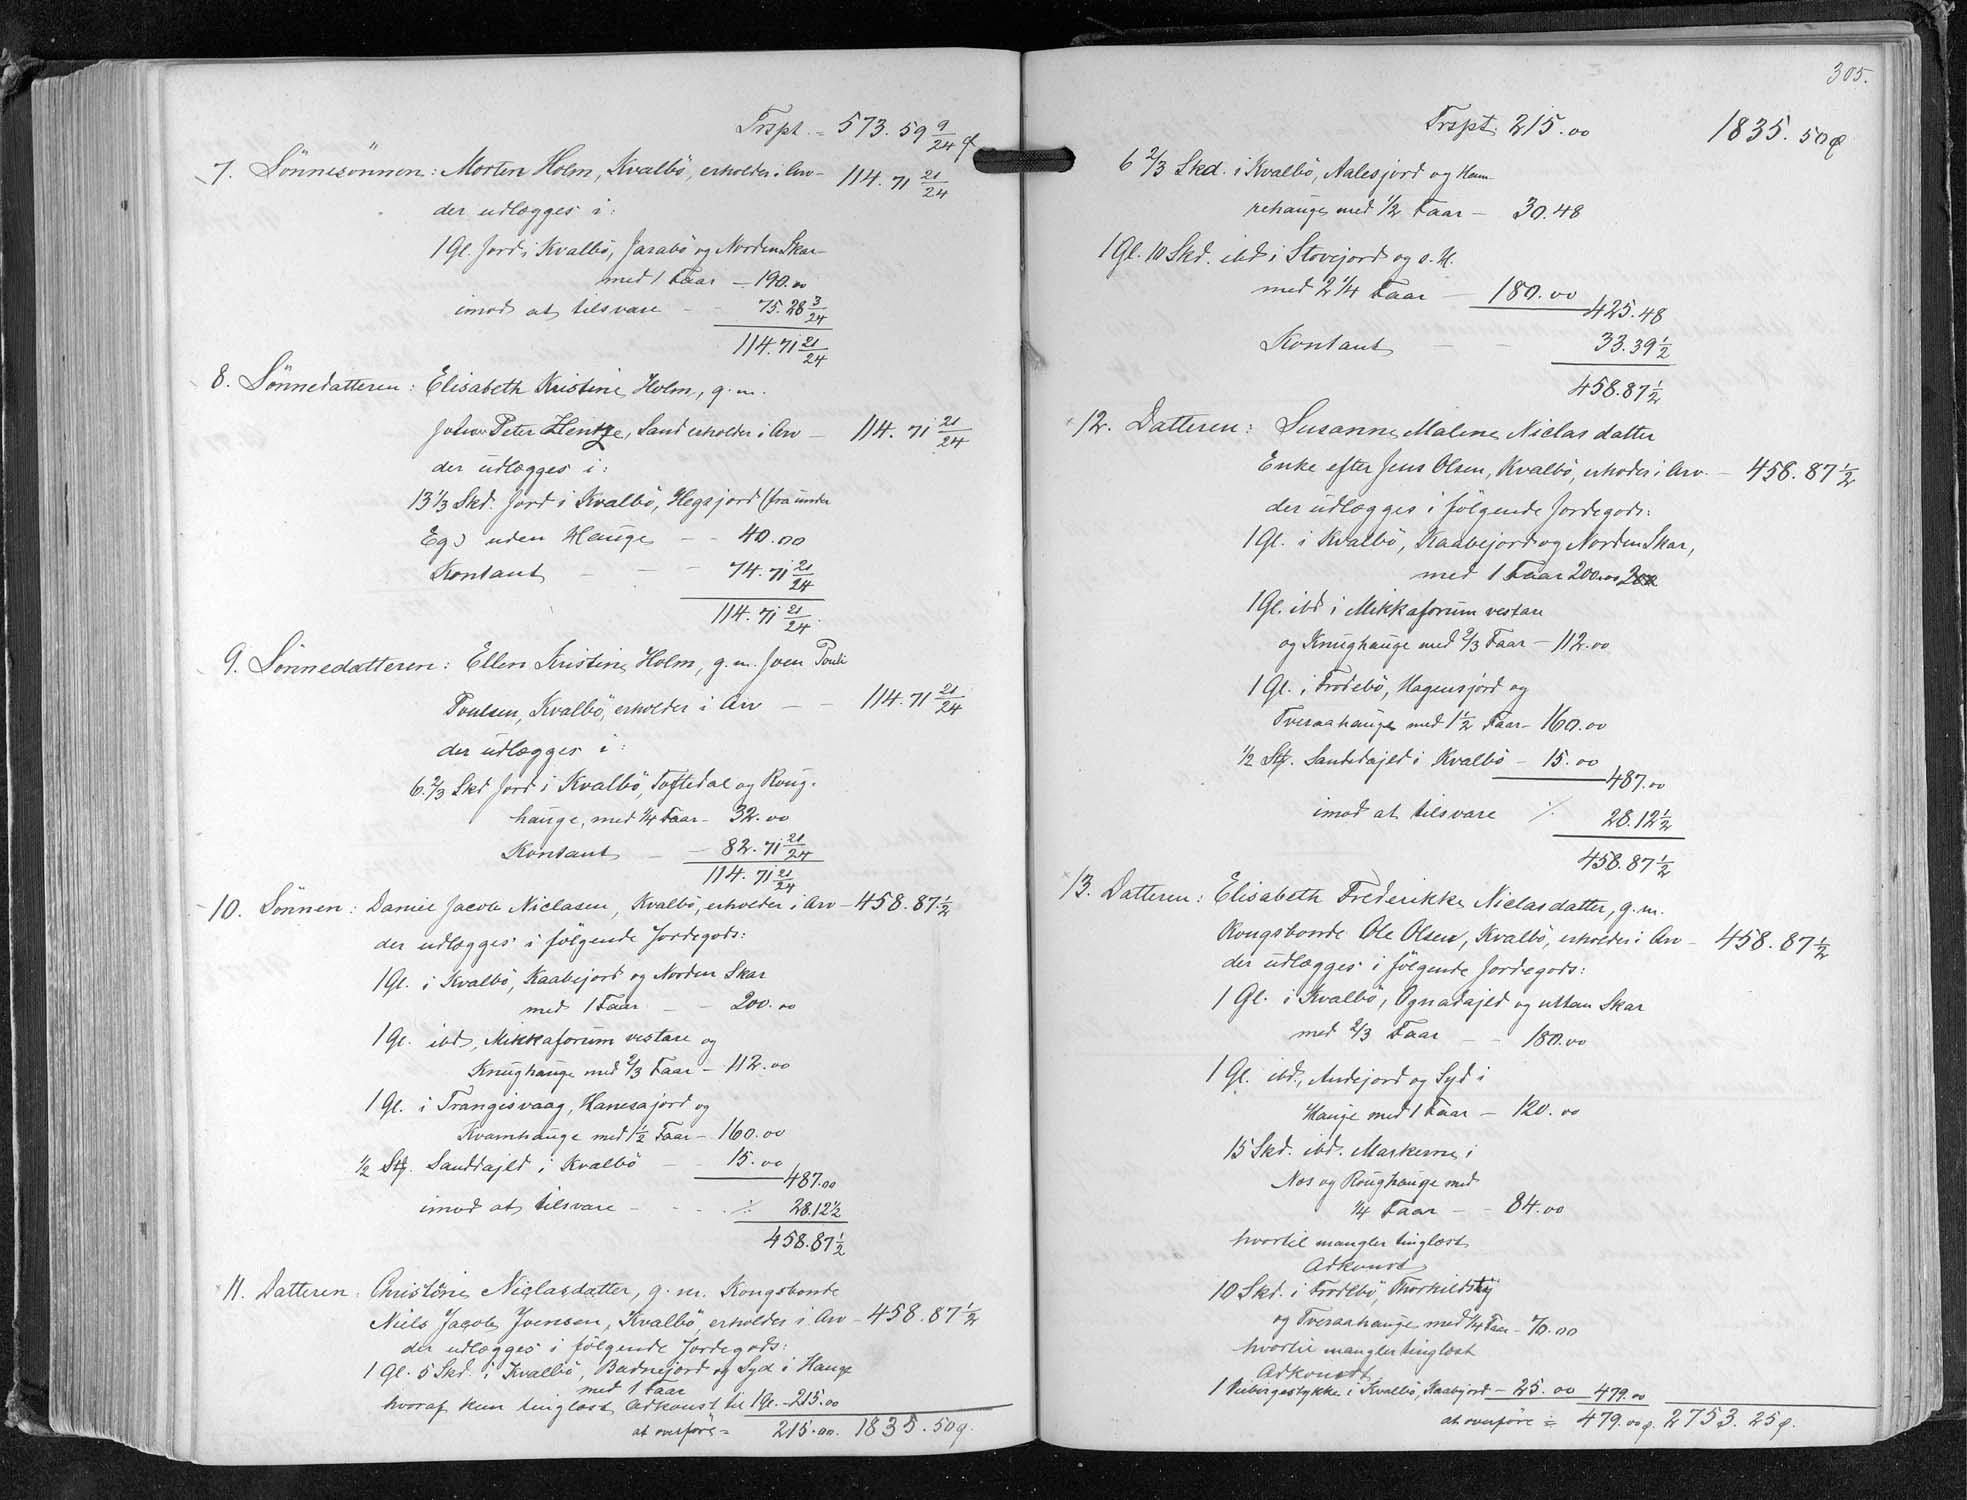 Trspt. = 573. 59 9/24 φ
7. Sönnesönnen: Morten Holm, Kvalbö, erholder i Arv - 114. 71 21/24
der udlægges i:
1 Gl. Jord i Kvalbö, Jarabö og Norden Skar
med 1 Faar - 190.00
imod at tilsvare - - 75.28 3/24
114.71 21/24
8. Sönnedatteren: Elisabeth Kristine Holm, g. m.
Johan Peter Hentze, Sand erholder i Arv - 114. 71 21/24
der udlægges i:
13 1/3 Skd. Jord i Kvalbö, Hegsjord (fra under
Eg) uden Hauge - - 40.00
Kontant - - - 74.71 21/24
114.71 21/24
9. Sönnedatteren: Ellen Kristine Holm, g. m. Joen Pouli
Poulsen, Kvalbö, erholder i Arv - - 114.71 21/24
der udlægges i:
6 2/3 Skd Jord i Kvalbö, Toftedal og Roug-
hauge, med 1/4 Faar - 32.00
Kontant - - 82.71 21/24
114.71 21/24
10. Sönnen: Daniel Jacob Niclasen, Kvalbö, erholder i Arv - 458.87 1/2
der udlægges i fölgende Jordegods:
1 Gl. i Kvalbö, Kaabejord og Norden Skar
med 1 Faar - - 200.00
1 Gl. ibd, Mikkaforum vestare og
Knughauge med 2/3 Faar - 112.00
1 Gl. i Trangisvaag, Hanesajord og
Kvamhauge med 1 1/2 Faar - 160.00
1/2 Stf. Sanddajeld i Kvalbö - - 15.00
487.00
imod at tilsvare - - - ./. 28.12 1/2
458.87 1/2
11. Datteren: Christine Niclasdatter, g. m. Kongsbonde
Niels Jacob Joensen, Kvalbö, erholder i Arv - 458.87 1/2
der udlægges i fölgende Jordegods:
1 Gl. 5 Skd. i Kvalbö, Badnejord og Syd i Hauge
med 1 Faar
hvoraf kun tinglæst Adkomst til 1 Gl. - 215.00
at overföre = 215.00. 1835.50 φ.
305.
Trspt. 215.00 1835.50 φ
6 2/3 Skd. i Kvalbö, Aalesjord og Ham-
rehauge med 1/2 Faar - 30.48
1 Gl. 10 Skd. ibd i Stovejord og o. H.
med 2 1/4 Faar - 180.00
425.48
Kontant - - 33.39 1/2
458.87 1/2
12. Datteren: Susanne Malene Niclasdatter
Enke efter Jens Olsen, Kvalbö, erholder i Arv - 458.87 1/2
der udlægges i fölgende Jordegods:
1 Gl. i Kvalbö, Kaabejord og Norden Skar,
med 1 Faar 200.00
1 Gl. ibd i Mikkaforum vestare
og Knughauge med 2/3 Faar - 112.00
1 Gl. i Frodebö, Hagensjord og
Tveraahauge med 1 1/2 Faar - 160.00
1/2 Stf. Sanddajeld i Kvalbö - 15.00
487.00
imod at tilsvare ./. 28.12 1/2
458.87 1/2
13. Datteren: Elisabeth Frederikke Niclasdatter, g. m.
Kongsbonde Ole Olsen, Kvalbö, erholder i Arv - 458.87 1/2
der udlægges i fölgende Jordegods:
1 Gl. i Kvalbö, Ognadajeld og uttan Skar
med 2/3 Faar - - 180.00
1 Gl. ibd., Andejord og Syd i
Hauge med 1 Faar - 120.00
15 Skd. ibd. Markerne i
Nos og Roughauge med
1/4 Faar - - 84.00
hvortil mangler tinglæst
Adkomst
10 Skd. i Frodebö, Thorkildstij
og Tveraahauge med 1/4 Faar - 70.00
hvortil mangler tinglæst
Adkomst
1 Neborgestykke i Kvalbö, Kaabejord - 25.00 479.00
at overföre = 479.00 φ. 2753.25 φ.